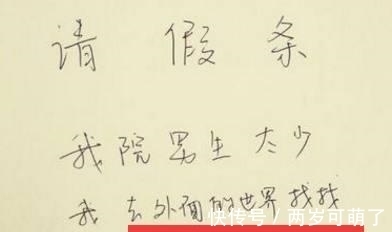 请假条
我院男生太少
我去外面的世界找找
快传号/两岁可萌了